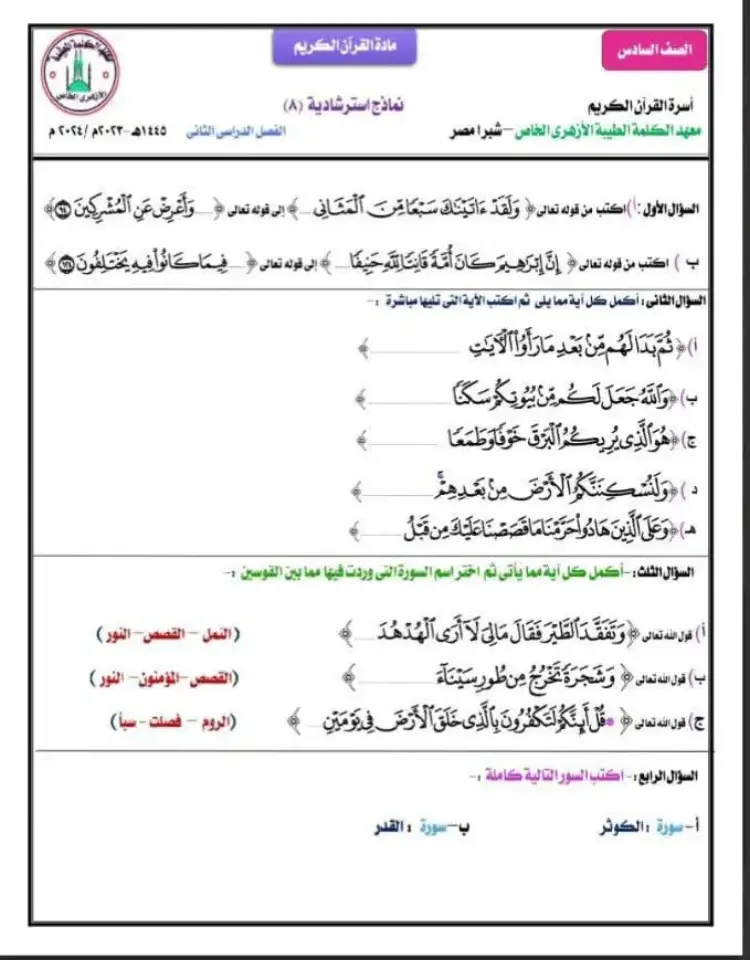 الصف السادس
مادة القرآن الكريم
أسرة القرآن الكريم
نماذج استرشادية (٨)
معهد الكلمة الطيبة الأزهرى الخاص – شبرا مصر
الفصل الدراسى الثانى ١٤٤٥هـ -٢٠٢٣م / ٢٠٢٤ م
السؤال الأول : أ) اكتب من قوله تعالى ﴿ وَلَقَدْ ءَاتَيْنَٰكَ سَبْعًا مِّنَ ٱلْمَثَانِى .... ﴾ إلى قوله تعالى ﴿ .... وَأَعْرِضْ عَنِ ٱلْمُشْرِكِينَ ٩٤ ﴾
ب ) اكتب من قوله تعالى ﴿ إِنَّ إِبْرَٰهِيمَ كَانَ أُمَّةً قَانِتًا لِّلَّهِ حَنِيفًا .... ﴾ إلى قوله تعالى ﴿ .... فِيمَا كَانُوا۟ فِيهِ يَخْتَلِفُونَ ١٢٤ ﴾
السؤال الثانى : أكمل كل آية مما يلى ثم اكتب الآية التى تليها مباشرة :-
أ) ﴿ ثُمَّ بَدَا لَهُم مِّنۢ بَعْدِ مَا رَأَوُا۟ ٱلْـَٔايَٰتِ ............ ﴾
ب) ﴿ وَٱللَّهُ جَعَلَ لَكُم مِّنۢ بُيُوتِكُمْ سَكَنًا ............ ﴾
ج) ﴿ هُوَ ٱلَّذِى يُرِيكُمُ ٱلْبَرْقَ خَوْفًا وَطَمَعًا ............ ﴾
د ) ﴿ وَلَنُسْكِنَنَّكُمُ ٱلْأَرْضَ مِنۢ بَعْدِهِمْ ۚ ............ ﴾
هـ) ﴿ وَعَلَى ٱلَّذِينَ هَادُوا۟ حَرَّمْنَا مَا قَصَصْنَا عَلَيْكَ مِن قَبْلُ ............ ﴾
السؤال الثلث :- أكمل كل آية مما يأتى ثم اختر اسم السورة التى وردت فيها مما بين القوسين :-
أ) قول الله تعالى ﴿ وَتَفَقَّدَ ٱلطَّيْرَ فَقَالَ مَالِىَ لَآ أَرَى ٱلْهُدْهُدَ ..... ﴾ (النمل – القصص – النور )
ب) قول الله تعالى ﴿ وَشَجَرَةً تَخْرُجُ مِن طُورِ سَيْنَآءَ ............ ﴾ (القصص –المؤمنون – النور )
ج) قول الله تعالى ﴿ قُلْ أَئِنَّكُمْ لَتَكْفُرُونَ بِٱلَّذِى خَلَقَ ٱلْأَرْضَ فِى يَوْمَيْنِ ..... ﴾ (الروم – فصلت - سبأ )
السؤال الرابع :- اكتب السور التالية كاملة :-
أ– سورة : الكوثر ب– سورة : القدر